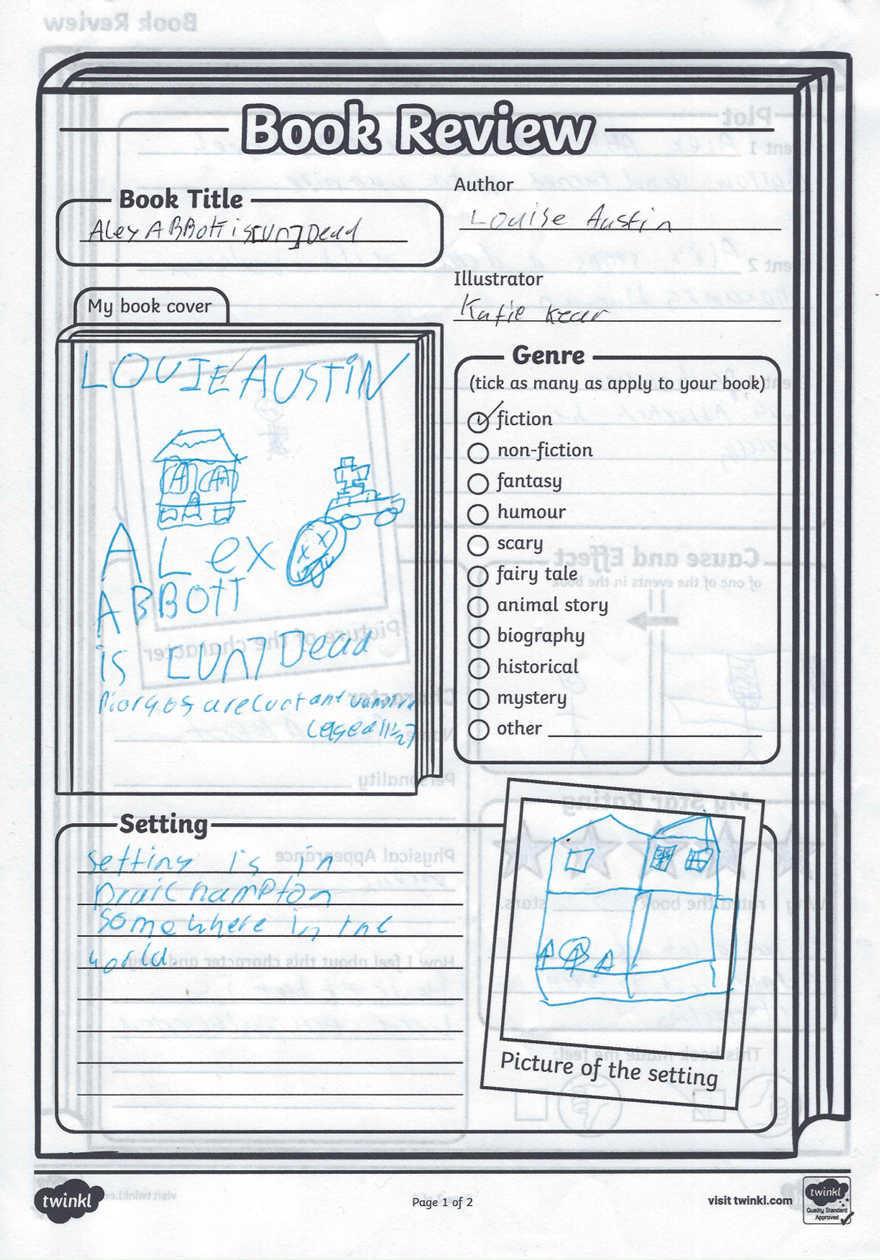 Book Review
Book Title
Alex ABBott is [UN] Dead
Author
Louise Austin
Illustrator
Katie Kear
My book cover
LOUIE AUSTIN
ALex
ABBOTT
is [UN] Dead
Genre
(tick as many as apply to your book)
fiction
non-fiction
fantasy
humour
scary
fairy tale
animal story
biography
historical
mystery
other
Setting
Setting is in
somewhere in the
world.
Picture of the setting
twinkl
Page 1 of 2
visit twinkl.com
twinkl
Quality Standard
Approved